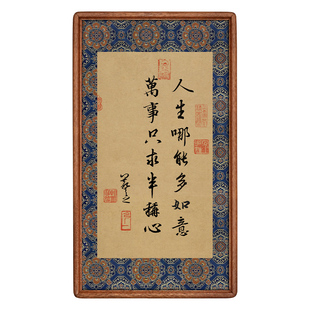 人生哪能多如意
萬事只求半稱心
羲之